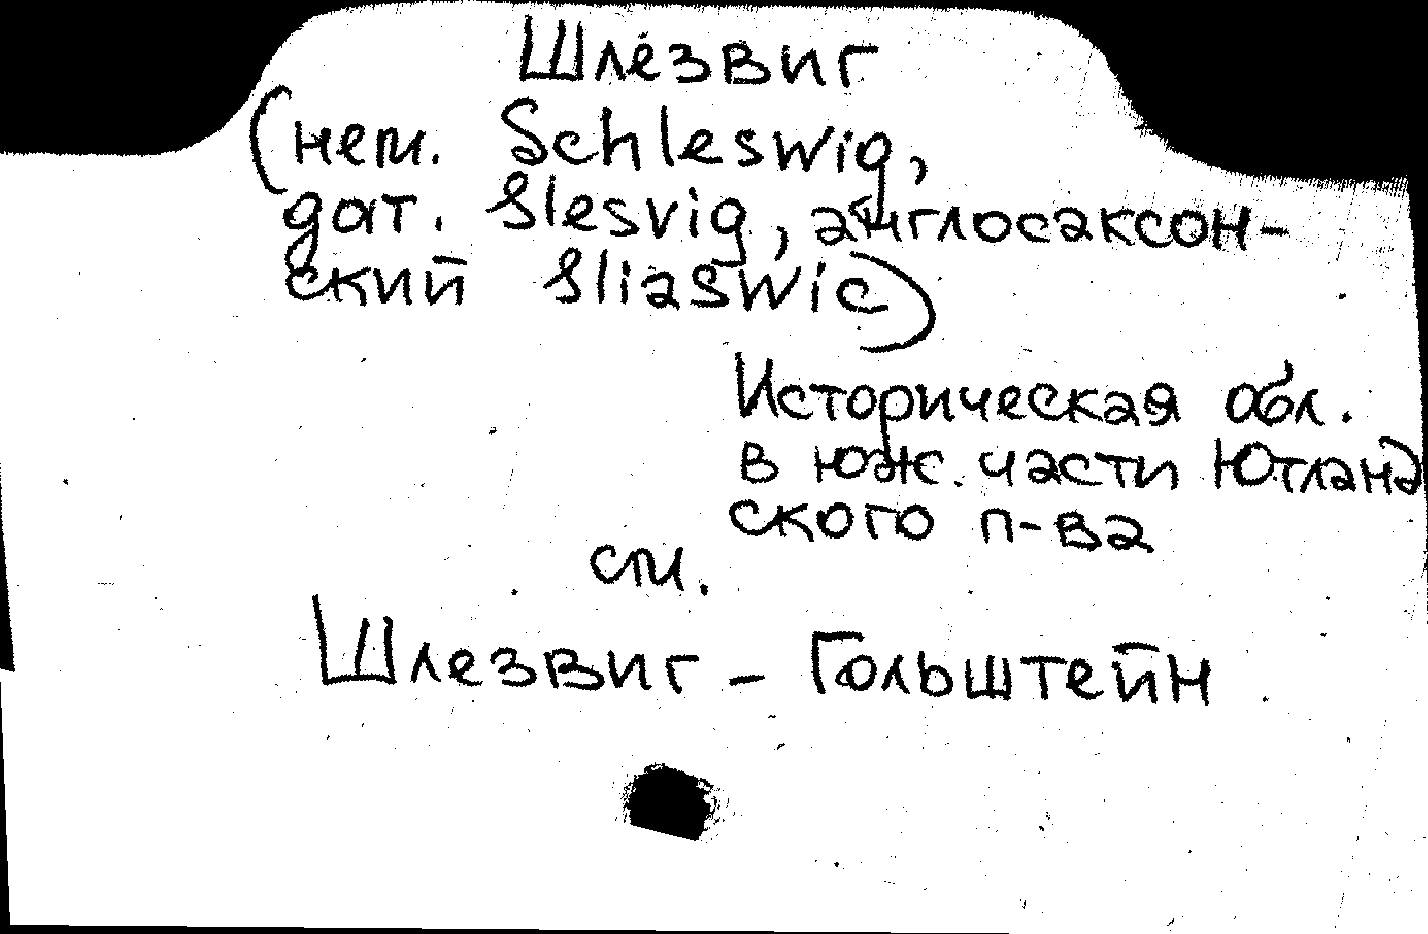 Шлезвиг
(нем. Schleswig,
дат. Slesvig, англосаксон-
ский Sliaswic)
Историческая обл.
в юж. части Ютланд
ского п-ва
см.
Шлезвиг - Гольштейн